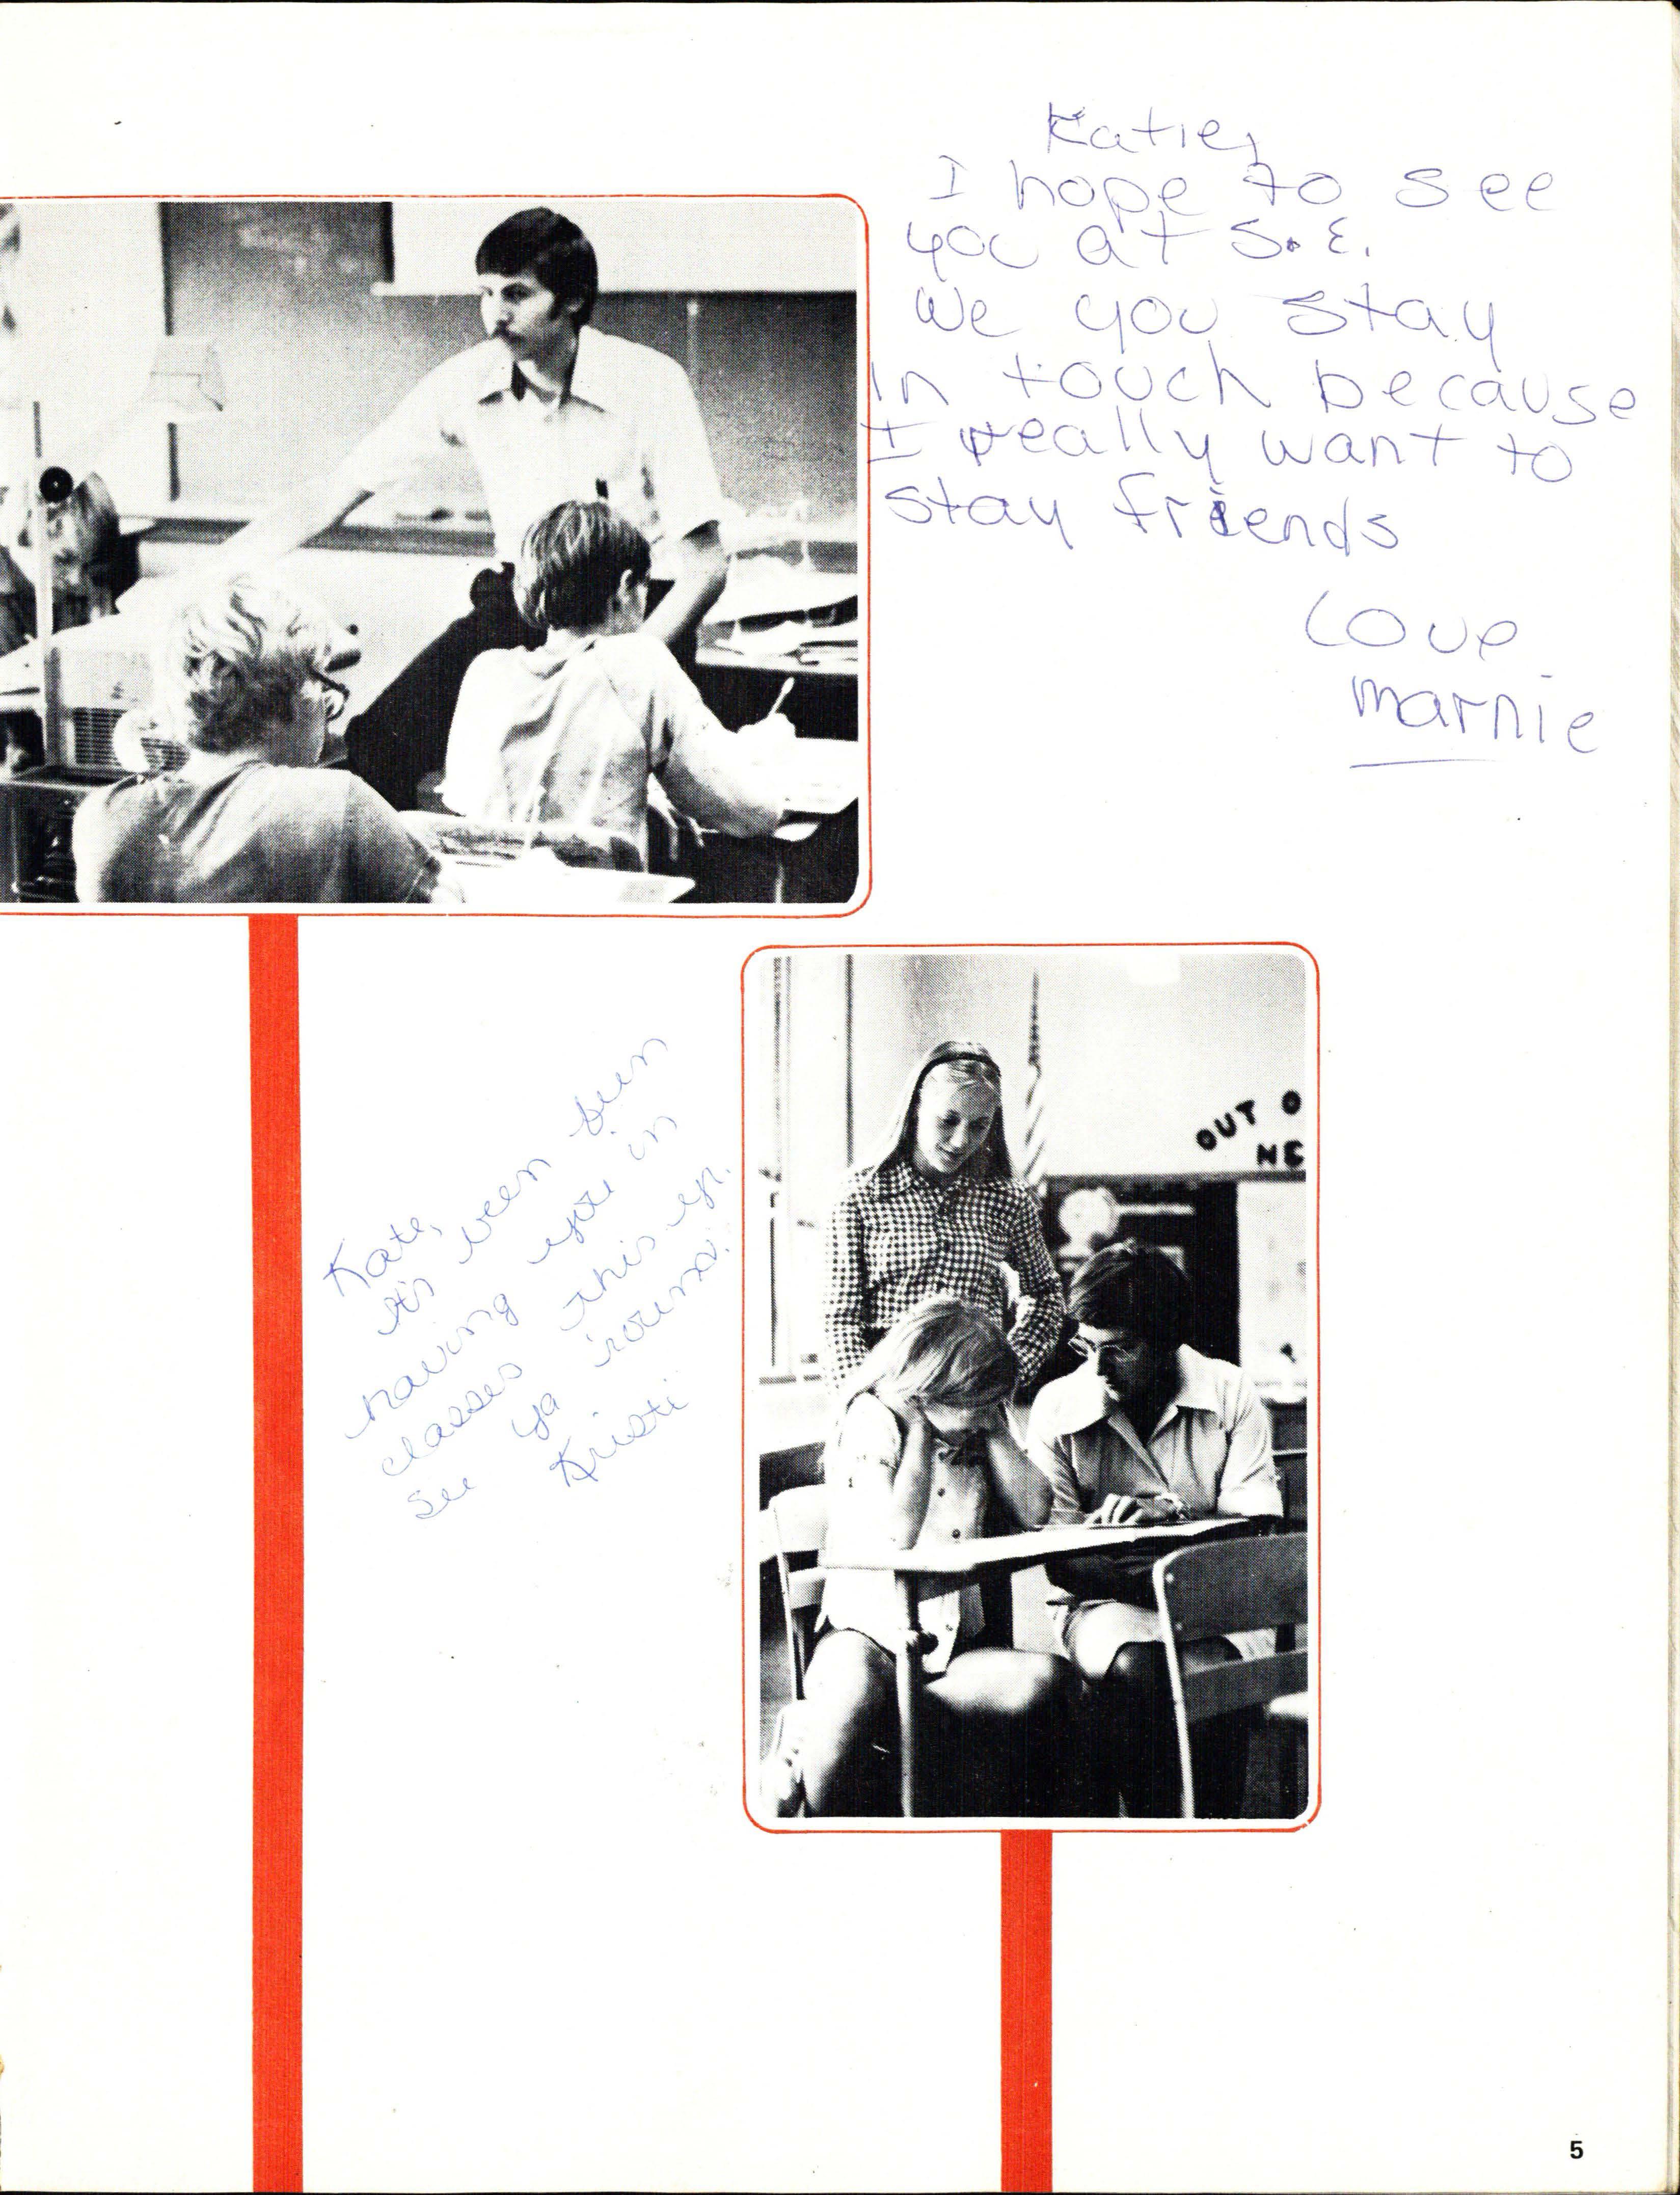 Katie,
I hope to see
you at S.E.
We you stay
in touch because
I really want to
stay friends
Love
Marnie
OUT O
NE
Kate,
It's been fun
having you in
classes this yr.
See ya 'round!
Kristi
5